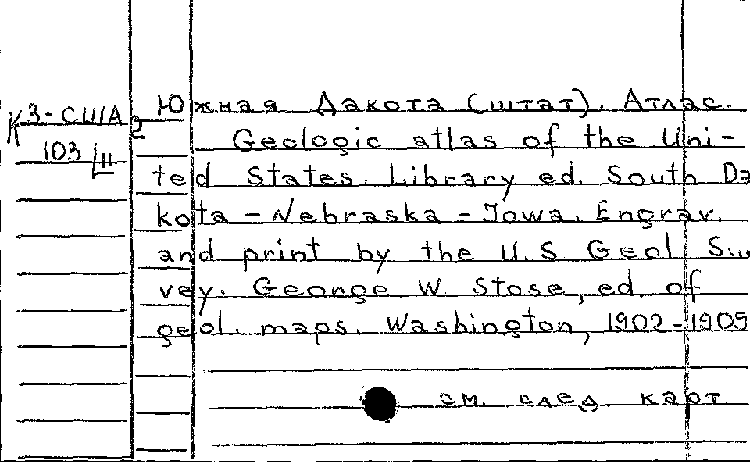 К 3-США 2
103 II
Южная Дакота (штат). Атлас.
Geologic atlas of the Uni-
ted States. Library ed. South Da
kota - Nebraska - Iowa. Engrav.
and print by the U.S Geol Sur
vey. George W. Stose, ed. of
geol. maps. Washington, 1902-1905
см. след карт